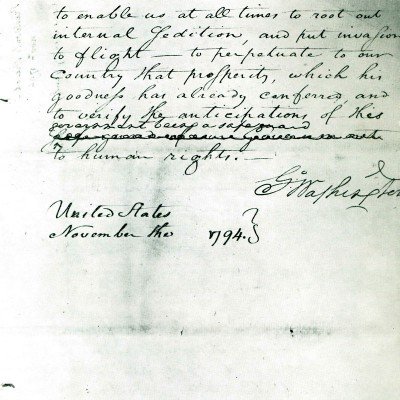 to enable us at all times to root out
internal Sedition, and put invasion
to flight — to perpetuate to our
Country that prosperity, which his
goodness has already conferred, and
to verify the anticipations of this
government being a safeguard
to human rights. —
G:Washington
United States
November the 1794.